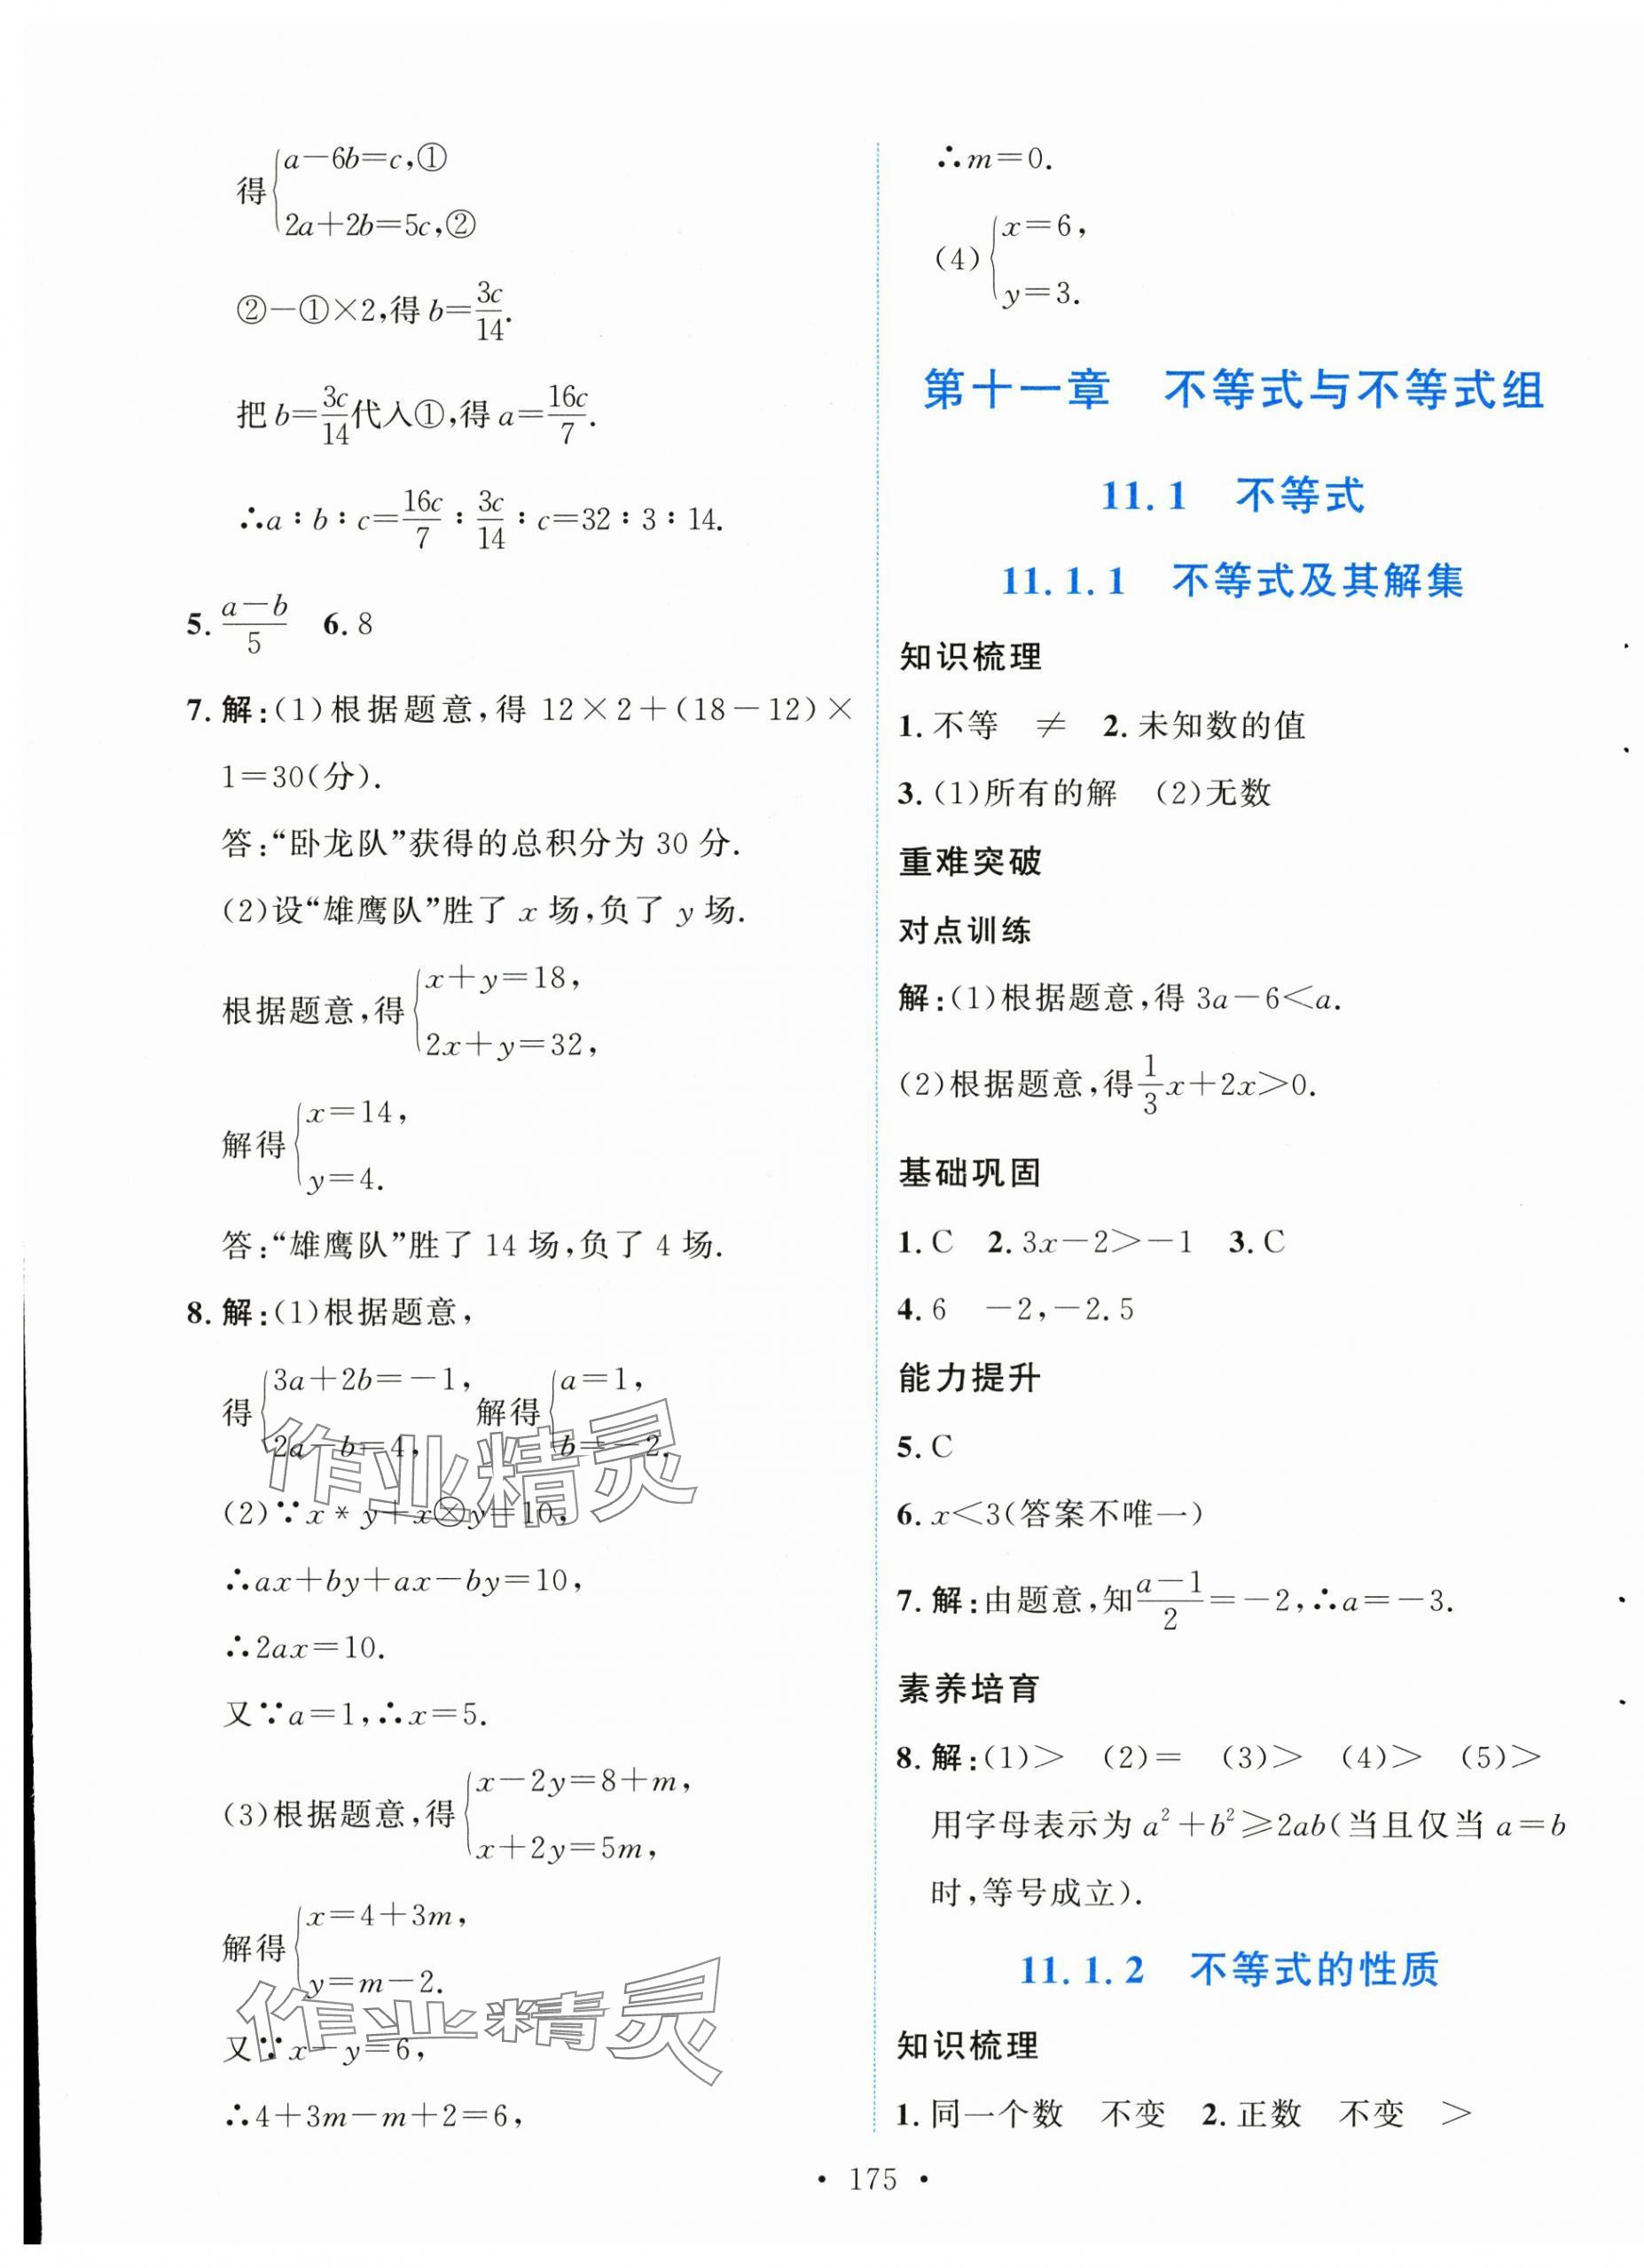 得{a－6b＝c,①
2a＋2b＝5c,②
②－①×2,得 b＝3c/14.
把 b＝3c/14代入①,得 a＝16c/7.
∴a∶b∶c＝16c/7∶3c/14∶c＝32∶3∶14.
5. (a－b)/5  6. 8
7. 解:(1)根据题意,得 12×2＋(18－12)×
1＝30(分).
答:“卧龙队”获得的总积分为 30 分.
(2)设“雄鹰队”胜了 x 场,负了 y 场.
根据题意,得{x＋y＝18,
2x＋y＝32,
解得{x＝14,
y＝4.
答:“雄鹰队”胜了 14 场,负了 4 场.
8. 解:(1)根据题意,
得{3a＋2b＝－1, 解得{a＝1,
2a－b＝4, b＝－2.
(2)∵x * y＋x⊗y＝10,
∴ax＋by＋ax－by＝10,
∴2ax＝10.
又∵a＝1,∴x＝5.
(3)根据题意,得{x－2y＝8＋m,
x＋2y＝5m,
解得{x＝4＋3m,
y＝m－2.
又∵x－y＝6,
∴4＋3m－m＋2＝6,
∴m＝0.
(4){x＝6,
y＝3.
第十一章 不等式与不等式组
11.1 不等式
11.1.1 不等式及其解集
知识梳理
1. 不等 ≠ 2. 未知数的值
3. (1)所有的解 (2)无数
重难突破
对点训练
解:(1)根据题意,得 3a－6＜a.
(2)根据题意,得1/3x＋2x＞0.
基础巩固
1. C 2. 3x－2＞－1 3. C
4. 6 －2,－2.5
能力提升
5. C
6. x＜3(答案不唯一)
7. 解:由题意,知(a－1)/2＝－2,∴a＝－3.
素养培育
8. 解:(1)＞ (2)＝ (3)＞ (4)＞ (5)＞
用字母表示为 a²＋b²≥2ab(当且仅当 a＝b
时,等号成立).
11.1.2 不等式的性质
知识梳理
1. 同一个数 不变 2. 正数 不变 ＞
• 175 •
作业精灵
作业精灵